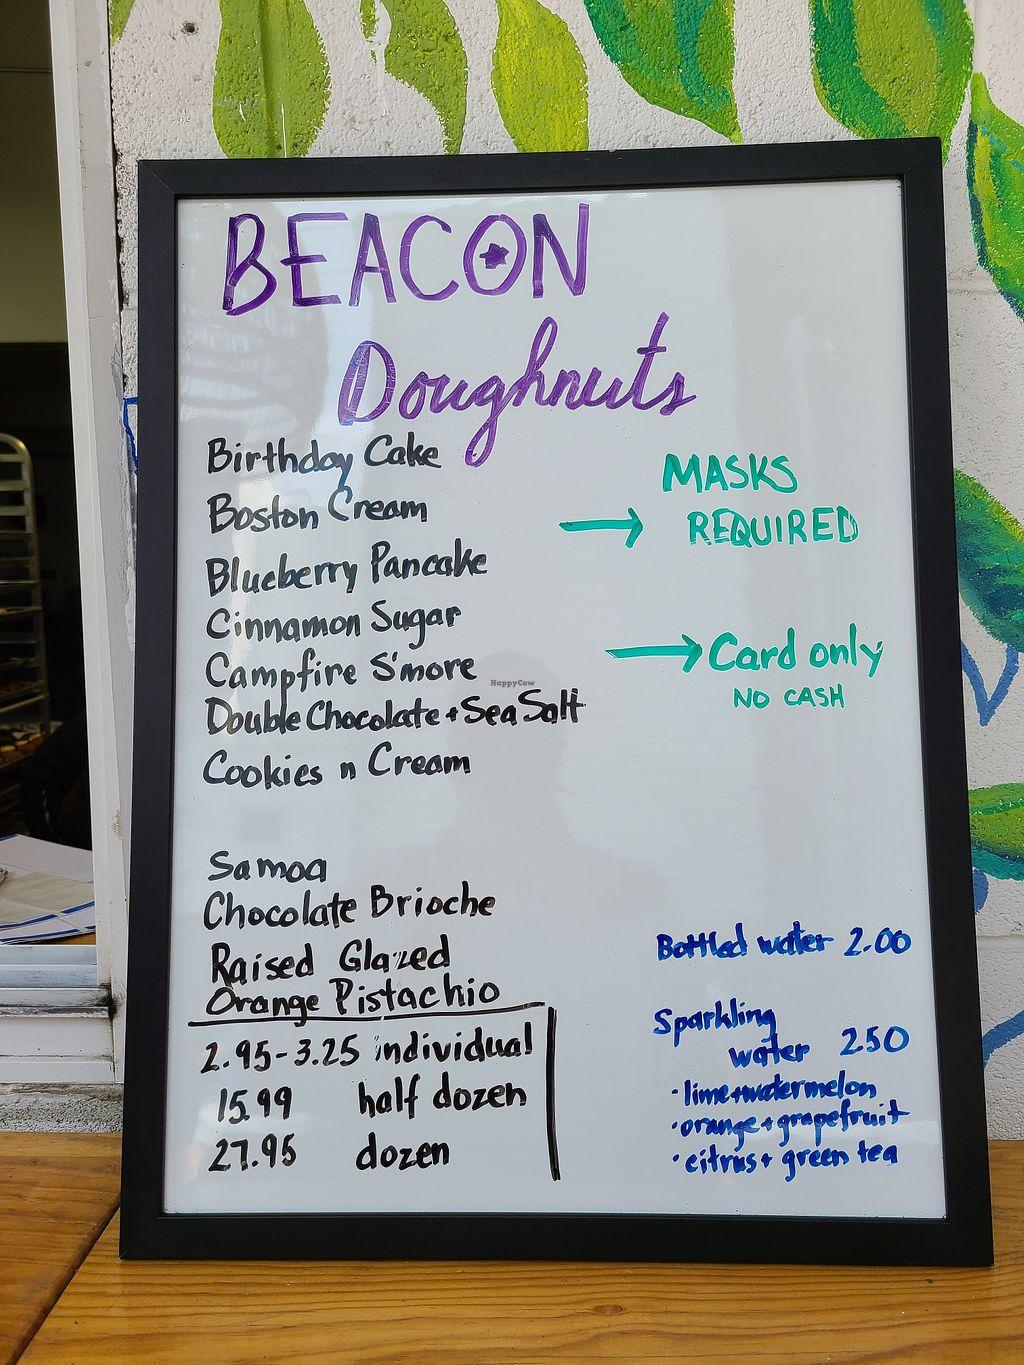 BEACON
Doughnuts
Birthday Cake
Boston Cream
Blueberry Pancake
Cinnamon Sugar
Campfire S'more
Double Chocolate + Sea Salt
Cookies n Cream
Samoa
Chocolate Brioche
Raised Glazed
Orange Pistachio
2.95-3.25 individual
15.99 half dozen
27.95 dozen
→ MASKS
REQUIRED
→ Card only
NO CASH
Bottled water 2.00
Sparkling
water 2.50
· lime+watermelon
· orange+grapefruit
· citrus+ green tea
HappyCow